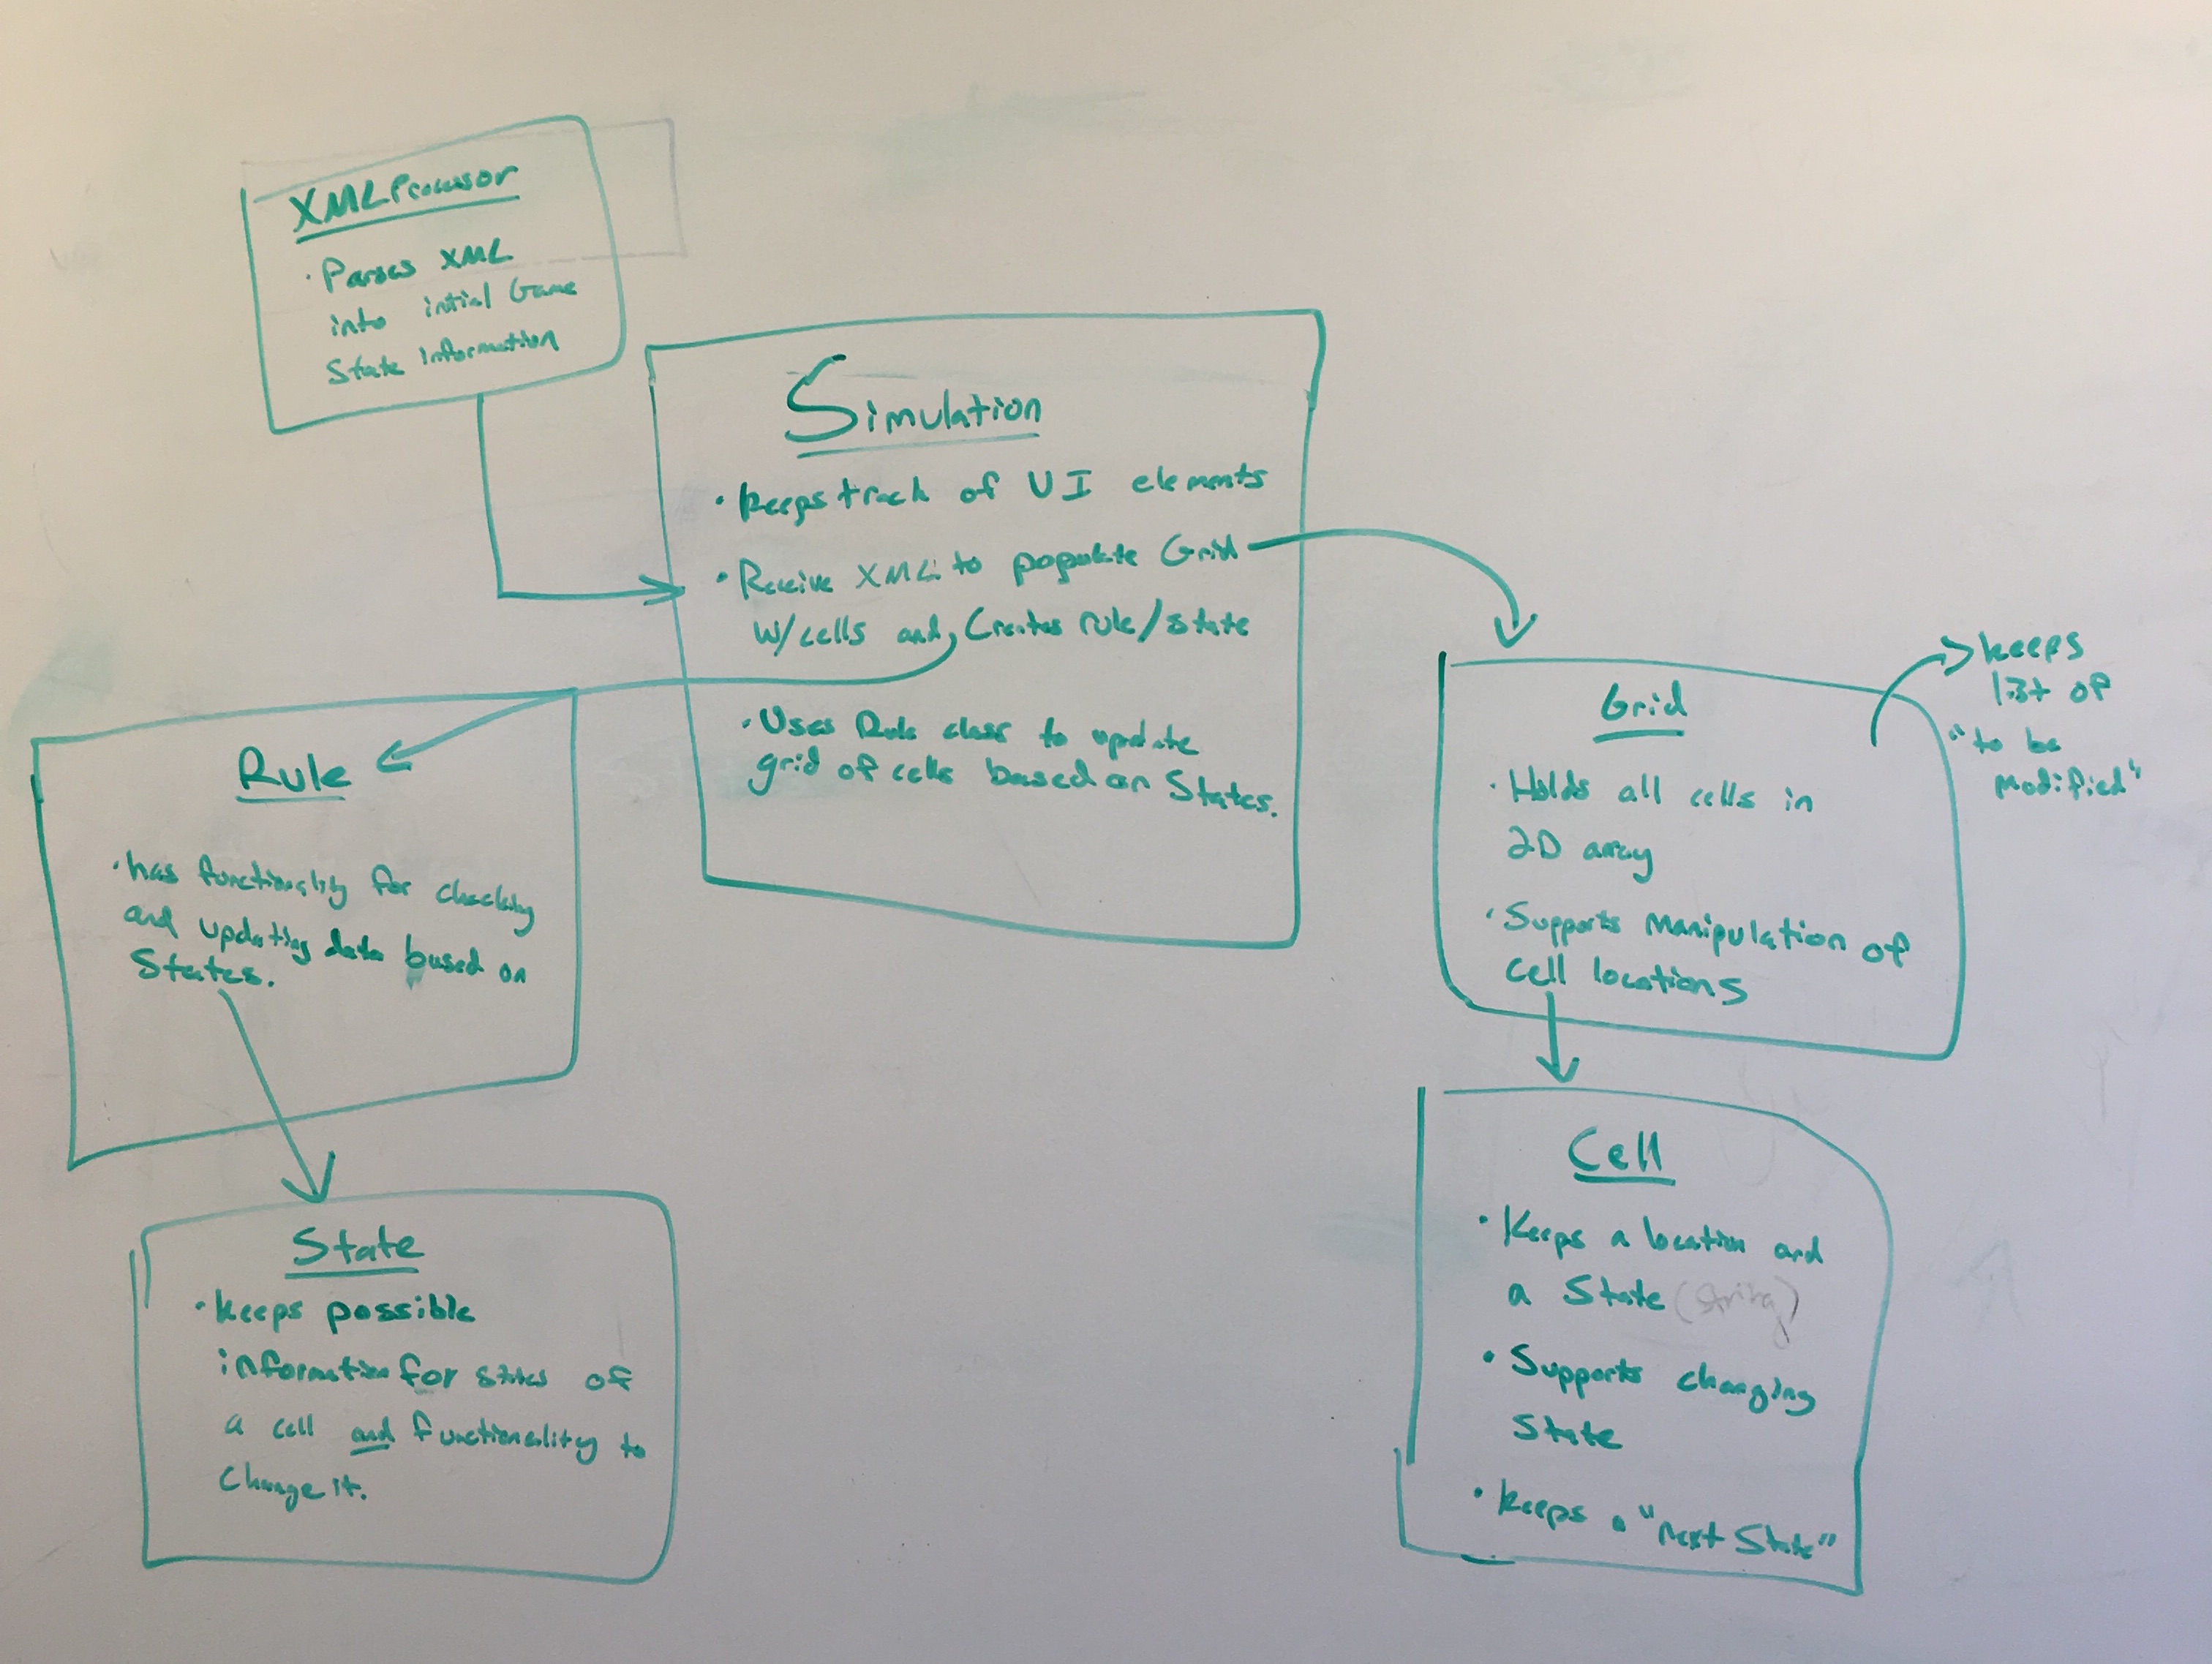 XMLProcessor
· Parses XML
into intial Game
State information
Simulation
· keeps track of UI elements
· Receive XML to populate Grid
w/cells and, Creates rule/state
· Uses Rule class to update
grid of cells based on States.
Rule
· has functionality for checking
and updating data based on
States.
State
· keeps possible
information for states of
a cell and functionality to
Change it.
Grid
· Holds all cells in
2D array
· Supports Manipulation of
Cell locations
keeps
list of
"to be
modified"
Cell
· Keeps a location and
a State (String)
· Supports changing
State
· keeps a "next State"